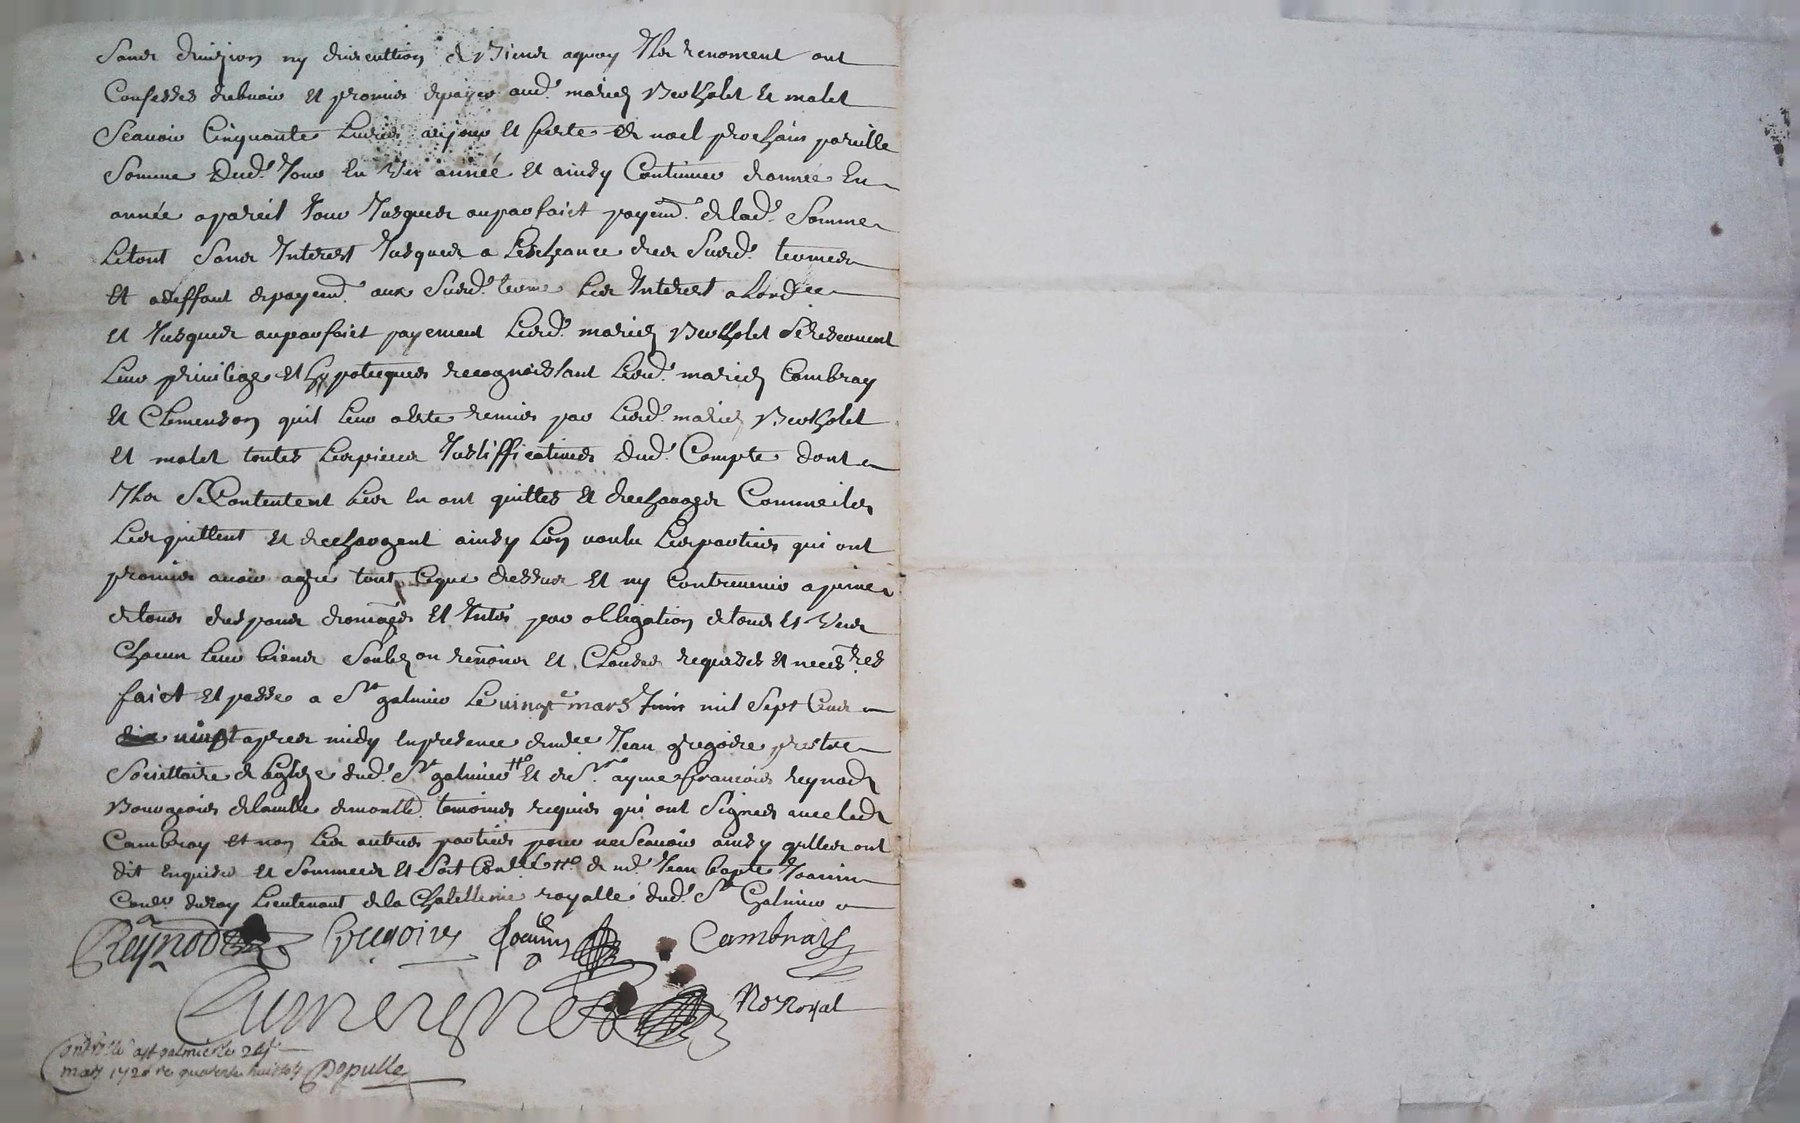 Sans division ny discution de Biens aquoy Ils renoncent ont
Confesses debvoir et promis de payer aud.t mariez Bertholet et malet
Scavoir Cinquante Livres au jour et feste de noel prochain pareille
Somme Dud.t Jour En un année et ainsy Continuer d'année En
année a pareil Jour Jusques au parfaict payem.t de lad.e Somme
Le tout Sans Interest Jusques a Lescheance des Susd.t termes
et a deffaut de payem.t aux Susd.t terme Les Interest a L'ord.ce
et Jusques au parfaict payement Lesd.t mariez Bertholet Se Reservent
Leur privilege et hypoteques recognoissant Lesd.t mariez Cambray
et Clemenson quil Leur a este remis par Lesd.t mariez Bertholet
et malet toutes Les pieces Justifficatives Dud.t Compte dont
Ils Se Contentent Les En ont quittes et decharges Comme ils
Les quittent et dechargent ainsy L'on voulu Les parties qui ont
promis avoir agré tout Ce que dessus et ny Contrevenir a peine
de tous despans domages et Intes par obligation de tous Et Uns
Chacun Leur biens Soubz on renons et Clauses requises et neces.res
faict et passe a St galmier Le vingt mars Juin mil Sept Cens
vingt apres midy En presence de m.re Jean gregoire prestre
Societtaire de Eglize dud.t St galmier et de Sr. ayme francois reynod
Bourgeois de temoins requis qui ont Signes avec led.t
Cambray et non Les autres parties pour ne Scavoir ainsy quelles ont
dit Enquises et Sommees et Soit de m.e Jean bapte Joanin
Con.er du Roy Lieutenant de la Chatellenie royalle dud.t St Galmier
Reynod Gregoire Joanin Cambray
Nore Royal
Controllé a St galmier le 24
mars 1720 re quarante huict s Depulle